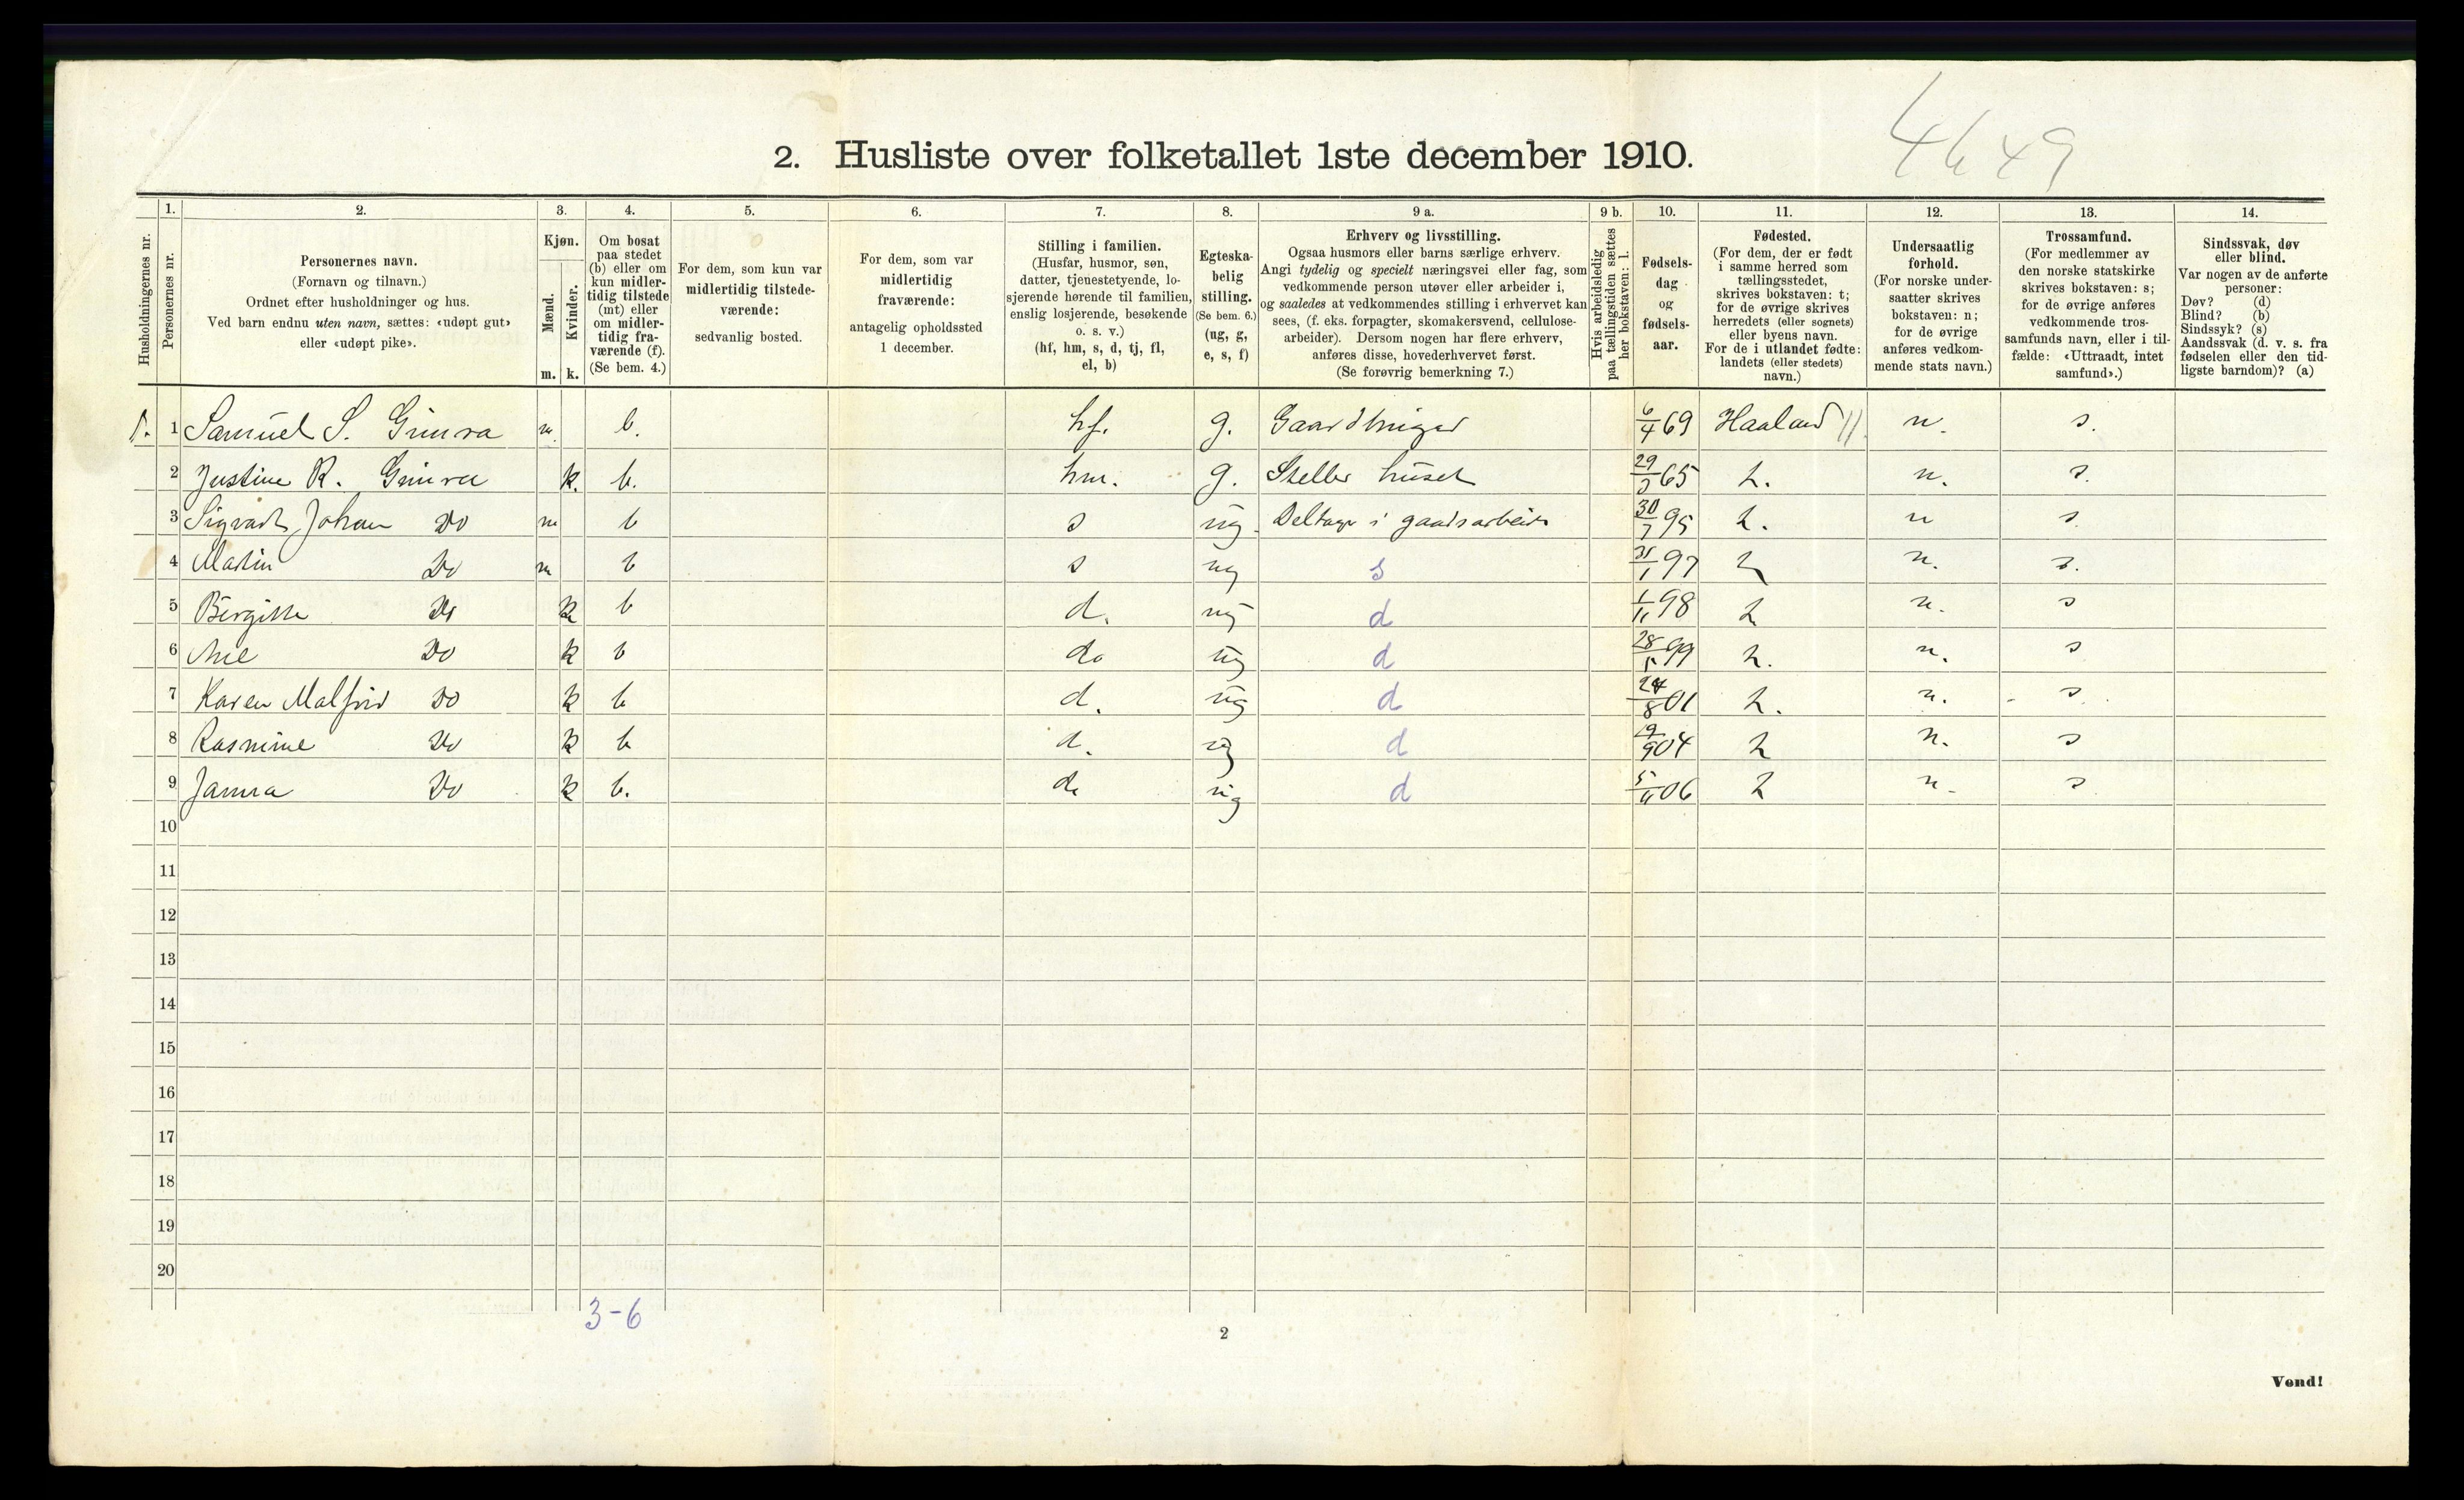 4649
2. Husliste over folketallet 1ste december 1910.
Husholdningernes nr.
1. Personernes nr.
2. Personernes navn.
(Fornavn og tilnavn.)
Ordnet efter husholdninger og hus.
Ved barn endnu uten navn, sættes: «udøpt gut»
eller «udøpt pike».
3. Kjøn.
Mænd. m.
Kvinder. k.
4. Om bosat
paa stedet
(b) eller om
kun midler-
tidig tilstede
(mt) eller
om midler-
tidig fra-
værende (f).
(Se bem. 4.)
5. For dem, som kun var
midlertidig tilstede-
værende:
sedvanlig bosted.
6. For dem, som var
midlertidig
fraværende:
antagelig opholdssted
1 december.
7. Stilling i familien.
(Husfar, husmor, søn,
datter, tjenestetyende, lo-
sjerende hørende til familien,
enslig losjerende, besøkende
o. s. v.)
(hf, hm, s, d, tj, fl,
el, b)
8. Egteska-
belig
stilling.
(Se bem. 6.)
(ug, g,
e, s, f)
9 a. Erhverv og livsstilling.
Ogsaa husmors eller barns særlige erhverv.
Angi tydelig og specielt næringsvei eller fag, som
vedkommende person utøver eller arbeider i,
og saaledes at vedkommendes stilling i erhvervet kan
sees, (f. eks. forpagter, skomakersvend, cellulose-
arbeider). Dersom nogen har flere erhverv,
anføres disse, hovederhvervet først.
(Se forøvrig bemerkning 7.)
9 b. Hvis arbeidsledig
paa tællingstiden sættes
her bokstaven: l.
10. Fødsels-
dag
og
fødsels-
aar.
11. Fødested.
(For dem, der er født
i samme herred som
tællingsstedet,
skrives bokstaven: t;
for de øvrige skrives
herredets (eller sognets)
eller byens navn.
For de i utlandet fødte:
landets (eller stedets)
navn.)
12. Undersaatlig
forhold.
(For norske under-
saatter skrives
bokstaven: n;
for de øvrige
anføres vedkom-
mende stats navn.)
13. Trossamfund.
(For medlemmer av
den norske statskirke
skrives bokstaven: s;
for de øvrige anføres
vedkommende tros-
samfunds navn, eller i til-
fælde: «Uttraadt, intet
samfund».)
14. Sindssvak, døv
eller blind.
Var nogen av de anførte
personer:
Døv? (d)
Blind? (b)
Sindssyk? (s)
Aandssvak (d. v. s. fra
fødselen eller den tid-
ligste barndom)? (a)
1. 1 Samuel S. Gimra m. b. hf. g. Gaardbruger 6/4 69 Haaland n. s.
2 Justine R. Gimra k. b. hm. g. Steller huset 65 n. s.
3 Sigvart Johan Do m b s ug Deltager i gaardsarbeide 30/7 95 n s.
4 Martin Do m b s ug s 97 n. s.
5 Bergitte Do k b d. ug d 1/11 98 n. s
6 Ane Do k b d. ug d 99 n. s
7 Karen Malfrid Do k b d. ug d 01 n. s
8 Rasmine Do k b d. ug d 04 n. s
9 Do k b. d. ug d 5/11 06 n. s
10
11
12
13
14
15
16
17
18
19
20
3-6
2
Vend!